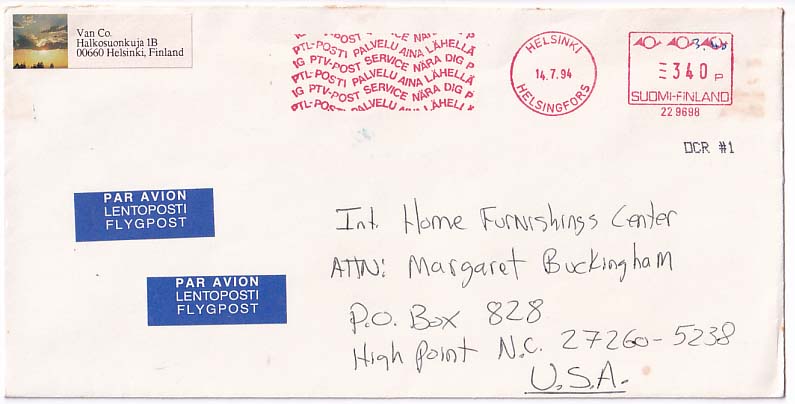 Van Co.
Halkosuonkuja 1B
00660 Helsinki, Finland
POST SERVICE NÄRA
PTL-POSTI PALVELU AINA LÄHELLÄ
IG PTV-POST SERVICE NÄRA DIG P
PTL-POSTI PALVELU AINA LÄHELLÄ
IG PTV-POST SERVICE NÄRA DIG P
PTL-POSTI PALVELU AINA LÄHELL
HELSINKI
14.7.94
HELSINGFORS
340 P
SUOMI-FINLAND
22 9698
OCR #1
PAR AVION
LENTOPOSTI
FLYGPOST
PAR AVION
LENTOPOSTI
FLYGPOST
Int. Home Furnishings Center
ATTN: Margaret Buckingham
P.O. Box 828
High Point N.C. 27260-5238
U.S.A.